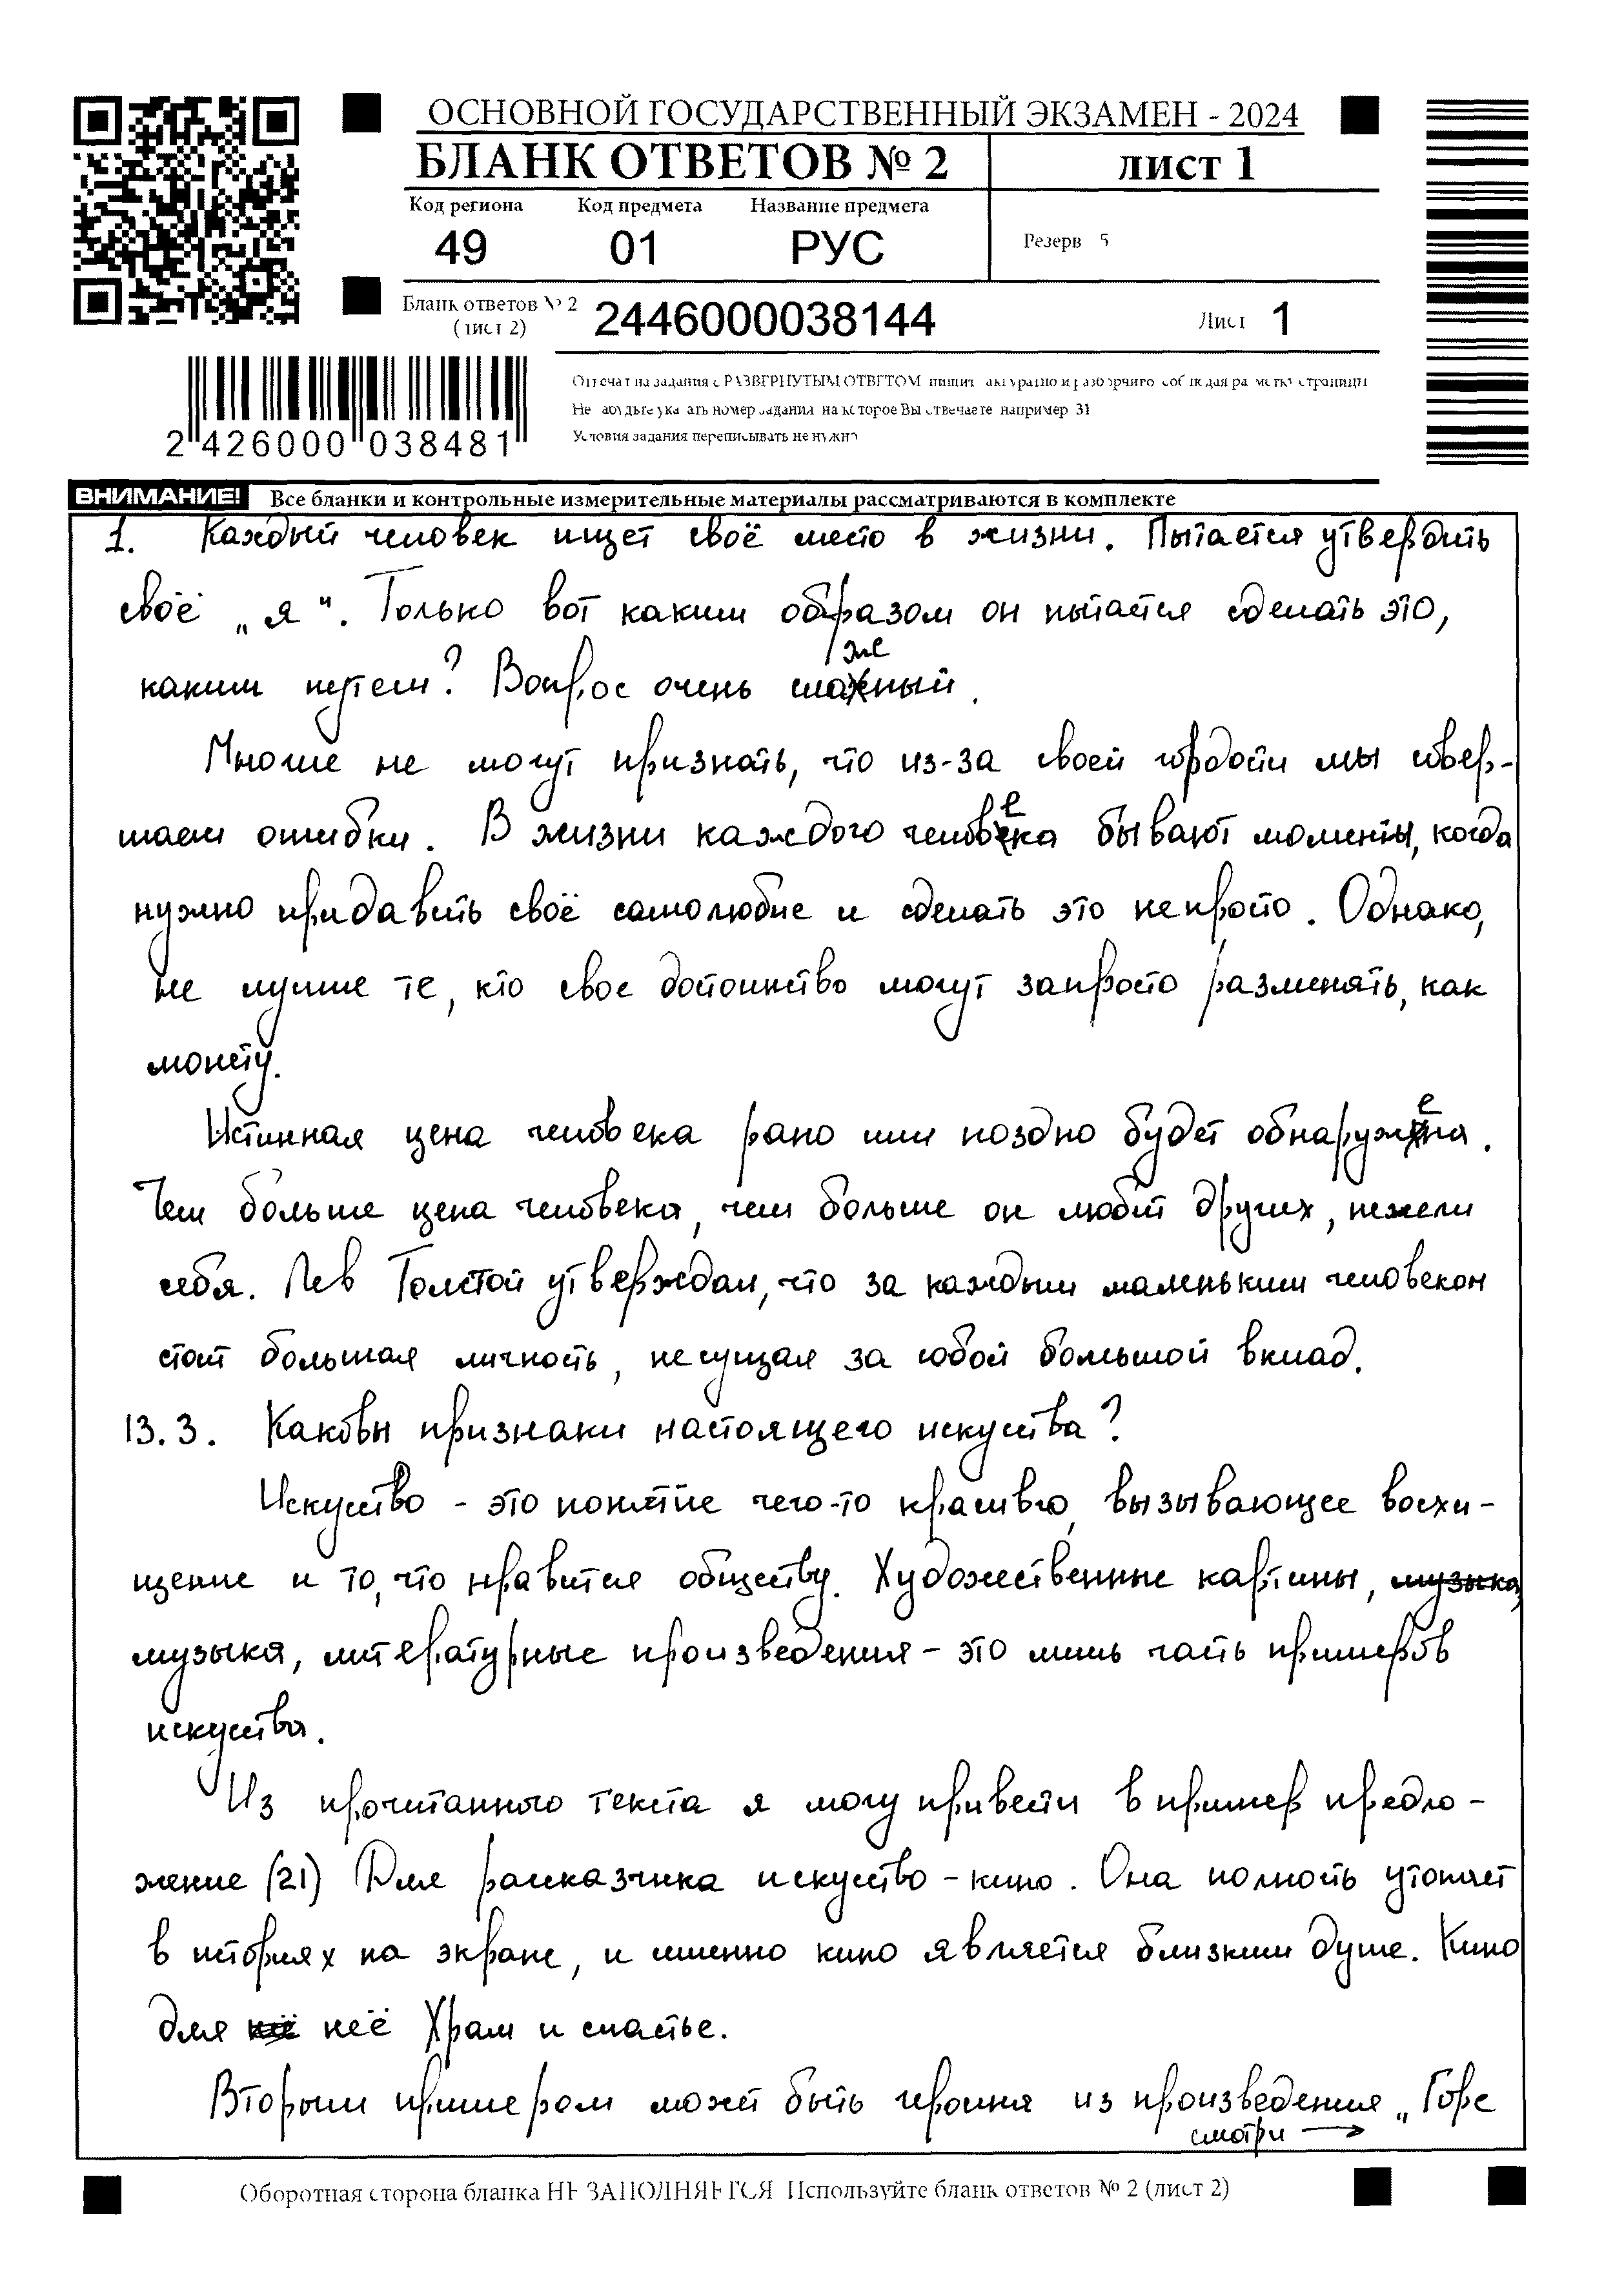 ОСНОВНОЙ ГОСУДАРСТВЕННЫЙ ЭКЗАМЕН - 2024
БЛАНК ОТВЕТОВ № 2
ЛИСТ 1
Код региона Код предмета Название предмета
49 01 РУС
Резерв 5
Бланк ответов № 2
(лист 2)
2446000038144
Лист 1
2 426000 038481
Отвечая на задания с РАЗВЕРНУТЫМ ОТВЕТОМ пишите аккуратно и разборчиво соблюдая разметку страницы
Не забудьте указать номер задания на которое Вы отвечаете например 31
Условия задания переписывать не нужно
ВНИМАНИЕ! Все бланки и контрольные измерительные материалы рассматриваются в комплекте
1. Каждый человек ищет своё место в жизни. Пытается утвердить
своё „я“. Только вот каким образом он пытается сделать это,
каким путем? Вопрос очень сложный.
Многие не могут признать, что из-за своей гордости мы совер-
шаем ошибки. В жизни каждого человека бывают моменты, когда
нужно придавить своё самолюбие и сделать это непросто. Однако,
не лучше те, кто свое достоинство могут запросто разменять, как
монету.
Истинная цена человека рано или поздно будет обнаружена.
Чем больше цена человека, чем больше он любит других, нежели
себя. Лев Толстой утверждал, что за каждым маленьким человеком
стоит большая личность, несущая за собой большой вклад.
13.3. Каковы признаки настоящего искуства?
Искуство - это понятие чего-то красивого, вызывающее восхи-
щение и то, что нравится обществу. Художественные картины, музыка,
музыка, литературные произведения - это лишь часть примеров
искуства.
Из прочитанного текста я могу привести в пример предло-
жение (21) Для рассказчика искуство - кино. Она полность утопает
в историях на экране, и именно кино является близким душе. Кино
для неё Храм и счастье.
Вторым примером может быть героиня из произведения „Горе
смотри →
Оборотная сторона бланка НЕ ЗАПОЛНЯЕТСЯ Используйте бланк ответов № 2 (лист 2)